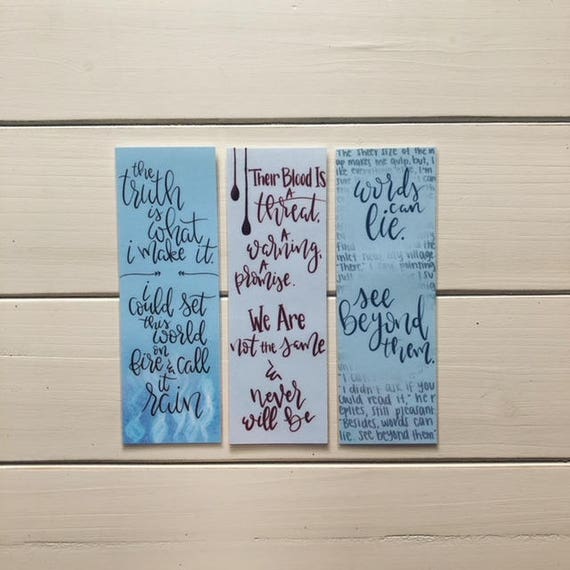 the
truth
is
what
i make it.
i
could set
this
world
on
fire & call
it
rain
Their Blood Is
a
threat,
a
warning,
a
promise.
We Are
not the same
&
never
will be
The sheer size of them
up makes me gulp, but, I
like
words
can
lie.
find
inlet near my village
"There," I say, pointing
just
see
beyond
them.
"I
"I didn't ask if you
could read it," her
eplies, still pleasant.
"Besides, words can
lie. see beyond them"